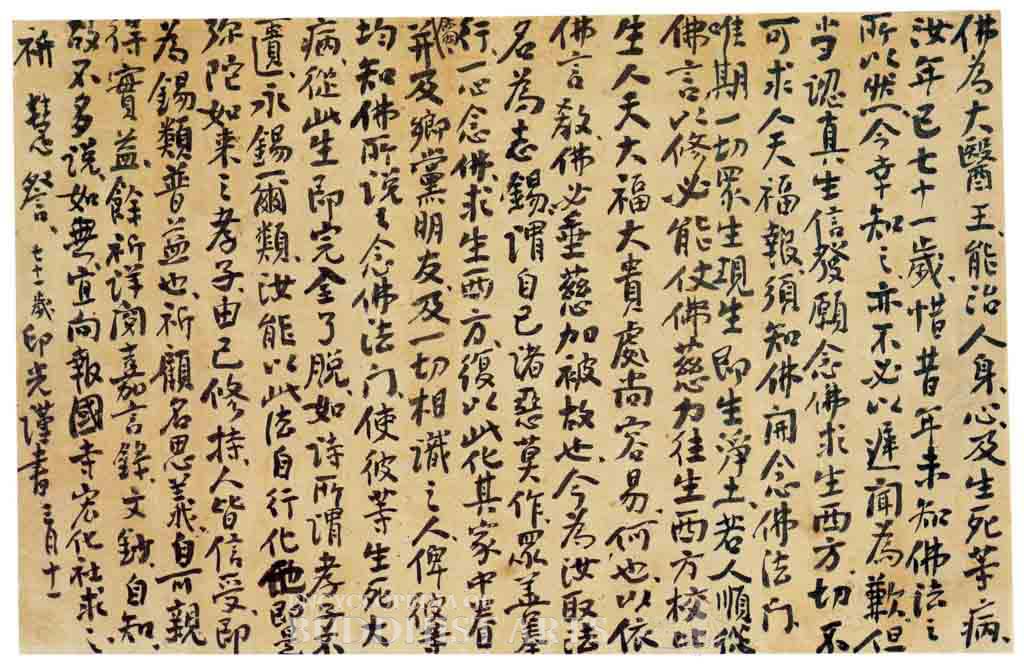 佛為大醫王、能治人身、心及生死等病、
汝年已七十一歲、惜昔年未知佛法之
所以然、今幸知之、亦不必以遲聞為歉、但
当認真生信發願念佛求生西方、切不
可求人天福報、須知佛開念佛法门、
唯期一切眾生現生即生淨土、若人順從
佛言以修、必能仗佛慈力往生西方、校比
生人天大福大貴處尚容易、何也、以依
佛言教、佛必垂慈加被故也、今為汝取法
名為志錫、謂自己諸惡莫作、眾善奉
行、一心念佛、求生西方、復以此化其家中眷
属、并及鄉黨朋友、及一切相識之人、俾彼等
均知佛所說之念佛法门、使彼等生死大
病、從此生即完全了脫、如詩所謂孝子不
匱、永錫爾類、汝能以此法自行化他、即是
弥陀如来之孝子、由己修持、人皆信受、即
為錫類普益也、祈顧名思義、自可親
得實益、餘祈詳閱嘉言錄、文鈔、自知、
故不多說、如無、宜向報國寺宏化社求之、
祈慧詧、七十一歲印光謹書 三月十一
ENCYCLOPEDIA OF
BUDDHIST ARTS